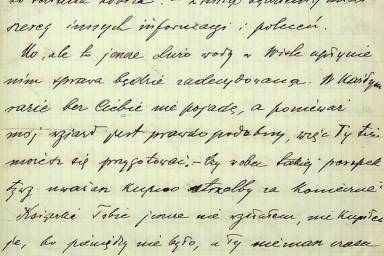 szereg innych informacji i poleceń.
No, ale to jeszcze dużo wody w Wiśle upłynie
nim sprawa będzie zadecydowana. W każdym
razie bez Ciebie nie pojadę, a ponieważ
mój wyjazd jest prawdopodobny, więc Ty też
możesz się przygotować. – Czy wobec takiej perspek
tywy uważasz kupno strzelby za konieczne?
Książek Tobie jeszcze nie wysłałem, nie kupiłem
je, bo pieniędzy nie było, a Ty nie masz czasu